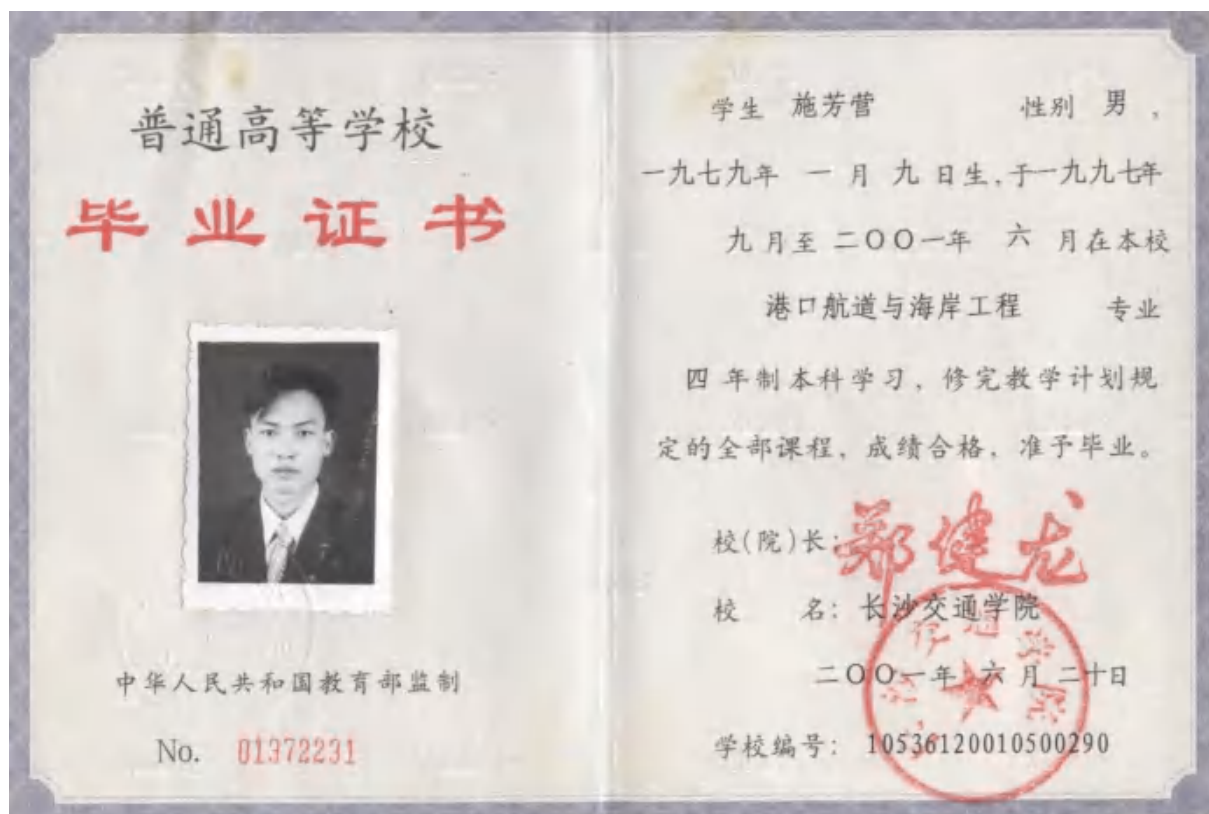 普通高等学校
毕业证书
中华人民共和国教育部监制
No. 01372231
学生 施芳营 性别 男，
一九七九年 一 月 九 日生,于一九九七年
九 月至 二〇〇一年 六 月在本校
港口航道与海岸工程 专业
四 年制本科学习，修完教学计划规
定的全部课程，成绩合格，准予毕业。
校(院)长: 郑健龙
校 名: 长沙交通学院
二〇〇一年 六 月 二十日
学校编号: 10536120010500290
长沙交通学院